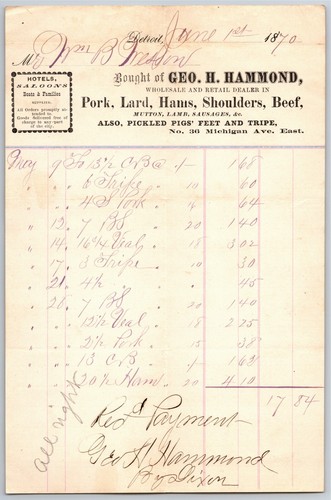 Detroit, June 1st 1870
Mr Wm B Wesson
Bought of GEO. H. HAMMOND,
WHOLESALE AND RETAIL DEALER IN
Pork, Lard, Hams, Shoulders, Beef,
MUTTON, LAMB, SAUSAGES, &c.
ALSO, PICKLED PIGS' FEET AND TRIPE,
No. 36 Michigan Ave. East.
HOTELS,
SALOONS
Boats & Families
SUPPLIED.
All Orders promptly attended to.
Goods delivered free of charge to any part of the city.
May 9 To 13½ C B @ 1/- 168
" " 6 Tripe 10 60
" " 4 S Pork 16 64
" 12. 7 BS 20 140
" 14. 16¾ Veal 18 302
" 17. 3 Tripe 10 30
" 21. 4½ " " 45
" 28. 7 BS 20 140
" " 12½ Veal 18 225
" " 2½ Pork 15 38
" " 13 C B 1/- 163
" " 20½ Ham 20 410
17 84
all right
Recd Payment
Geo H Hammond
By Dixon